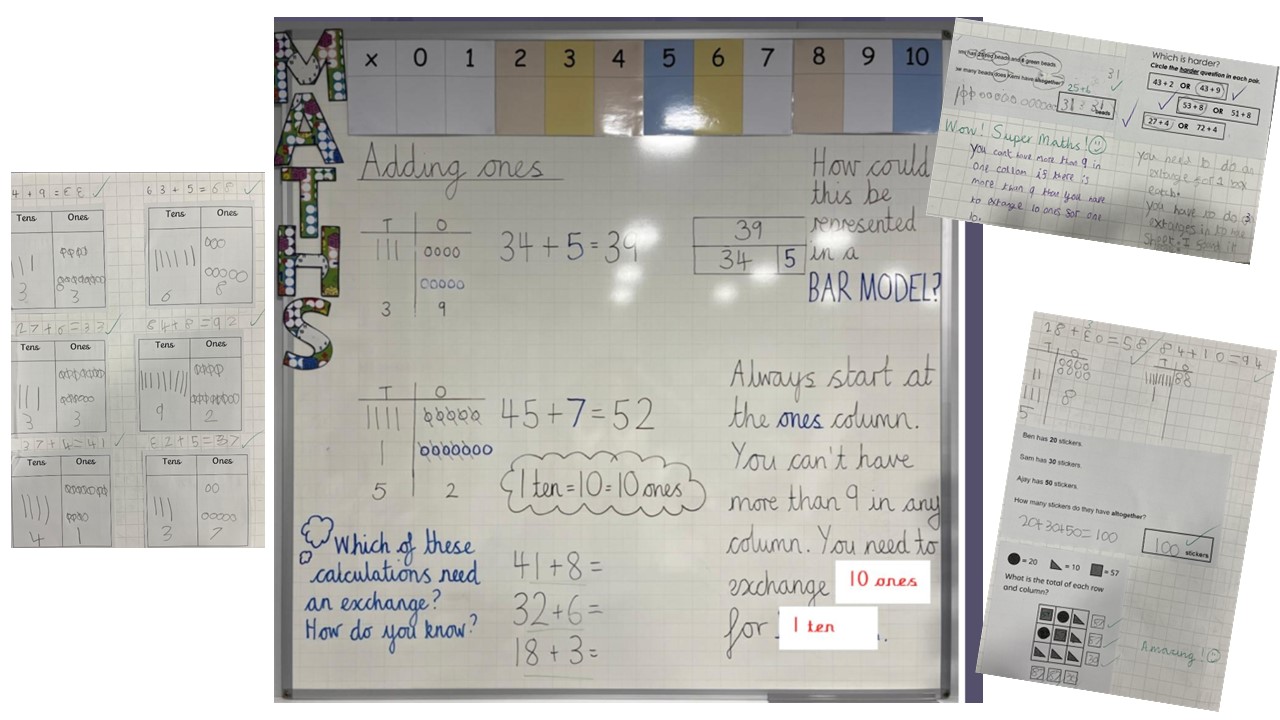 MATHS
x 0 1 2 3 4 5 6 7 8 9 10
Adding ones
T O
34 + 5 = 39
3 9
39
34 5
How could
this be
represented
in a
BAR MODEL?
T O
45 + 7 = 52
1 ten = 10 = 10 ones
5 2
Always start at
the ones column.
You can't have
more than 9 in any
column. You need to
exchange 10 ones
for 1 ten
Which of these
calculations need
an exchange?
How do you know?
41 + 8 =
32 + 6 =
18 + 3 =
63 + 5 = 68
Tens Ones
Tens Ones
3 3
6 8
27 + 6 = 33
84 + 8 = 92
Tens Ones
Tens Ones
3 3
9 2
37 + 4 = 41
Tens Ones
Tens Ones
4 1
3 7
beads and green beads.
many beads does have altogether?
25+6
31
31
beads
Wow! Super Maths!
you can't have more than 9 in
one collom if there is
more than 9 then you have
to extange 10 ones for one
Which is harder?
Circle the harder question in each pair.
43 + 2 OR 43 + 9
53 + 8 OR 51 + 8
27 + 4 OR 72 + 4
you need to do an
extange for 1 box
each.
you have to do 3
extanges in
sheet.
84 + 10 = 94
T O
T O
8
5
Ben has 20 stickers.
Sam has 30 stickers.
Ajay has 50 stickers.
How many stickers do they have altogether?
20+30+50=100
100 stickers
= 20 = 10 = 57
What is the total of each row
and column?
Amazing!